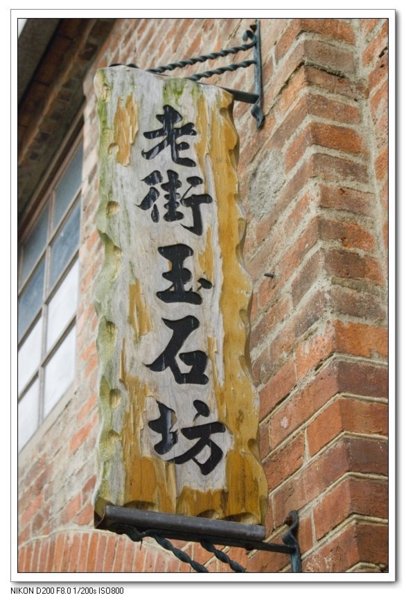 老街玉石坊
NIKON D200 F8.0 1/200s ISO800